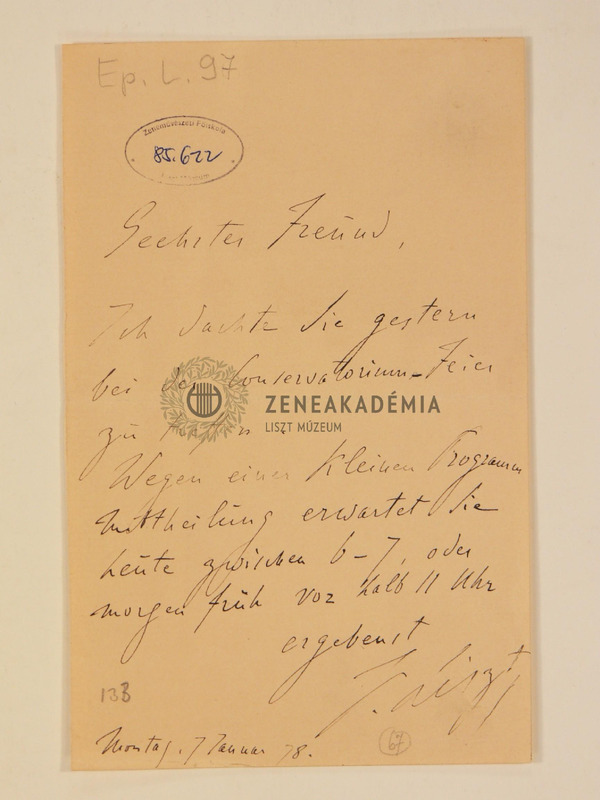 Ep. L. 97
Zeneművészeti Főiskola
85.622
Geehrter Freund,
Ich dachte Sie gestern
bei der Conservatorium-Feier
ZENEAKADÉMIA
LISZT MÚZEUM
zu treffen
Wegen einer kleinen Programm
Mittheilung erwartet Sie
heute zwischen 6-7, oder
morgen früh vor halb 11 Uhr
ergebenst
F. Liszt
133
Montag, 7 Januar 78.
67